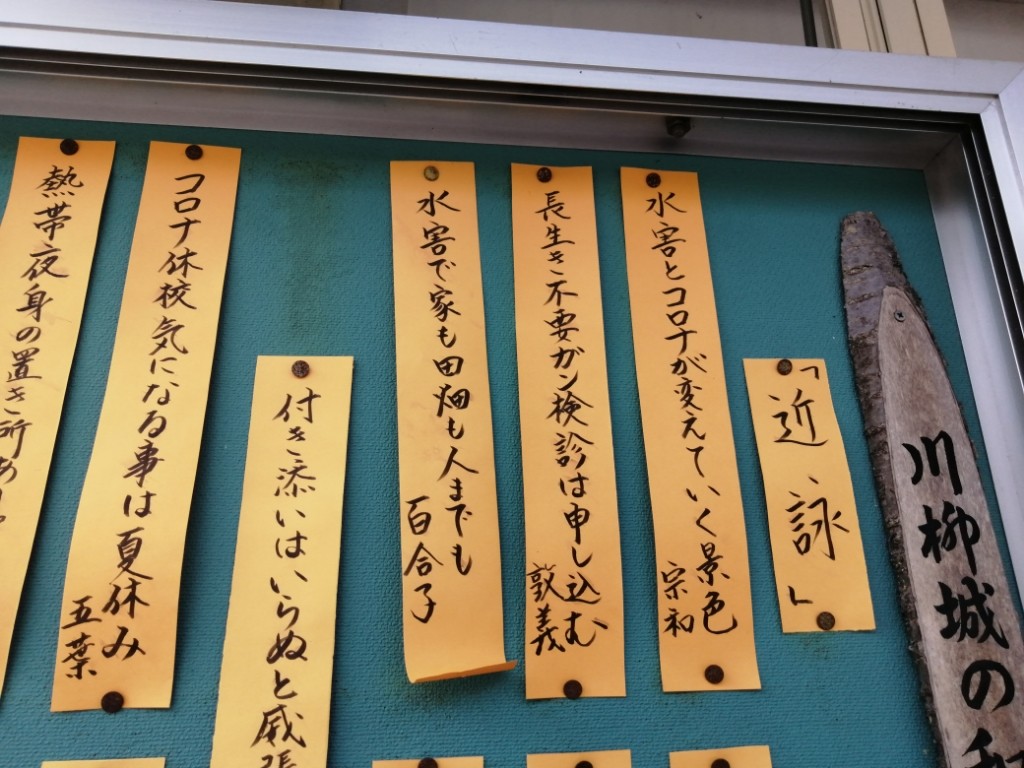 川柳城の
「近詠」
水害とコロナが変えていく景色
宗和
長生き不要ガン検診は申し込む
敦義
水害で家も田畑も人までも
百合子
付き添いはいらぬと威張
コロナ休校気になる事は夏休み
五葉
熱帯夜身の置き所あ